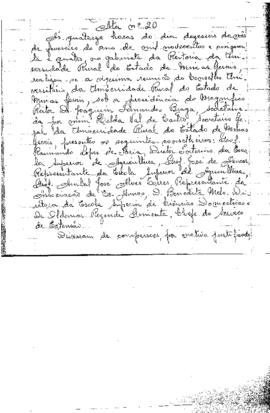 Ata nº 20
As quatorze horas do dia dezesseis do mês
de fevereiro do ano de mil novecentos e cinquen-
ta e quatro, no gabinete da Reitoria da Uni-
versidade Rural do Estado de Minas Gerais
realizou-se a vigésima reunião do Conselho Uni-
versitário da Universidade Rural do Estado de
Minas Gerais, sob a presidência do Magnífico
Reitor Dr. Joaquim Fernandes Braga, secretaria-
da por mim Hilda de Castro, Secretária Ge-
ral da Universidade Rural do Estado de Minas
Gerais, presentes os seguintes conselheiros: Prof.
Raimundo Lopes de Faria, Diretor Interino da Esco-
la Superior de Agricultura, Prof. José de
Representante da Escola Superior de Agricultura,
Prof. José Alves Torres, Representante da
Associação de Ex-Alunos, D. Benedita Melo, Di-
retora da Escola Superior de Ciências Domésticas e
Dr. Rezende Pimenta, Chefe do Serviço
de Extensão.
Deixaram de comparecer por motivo justificado